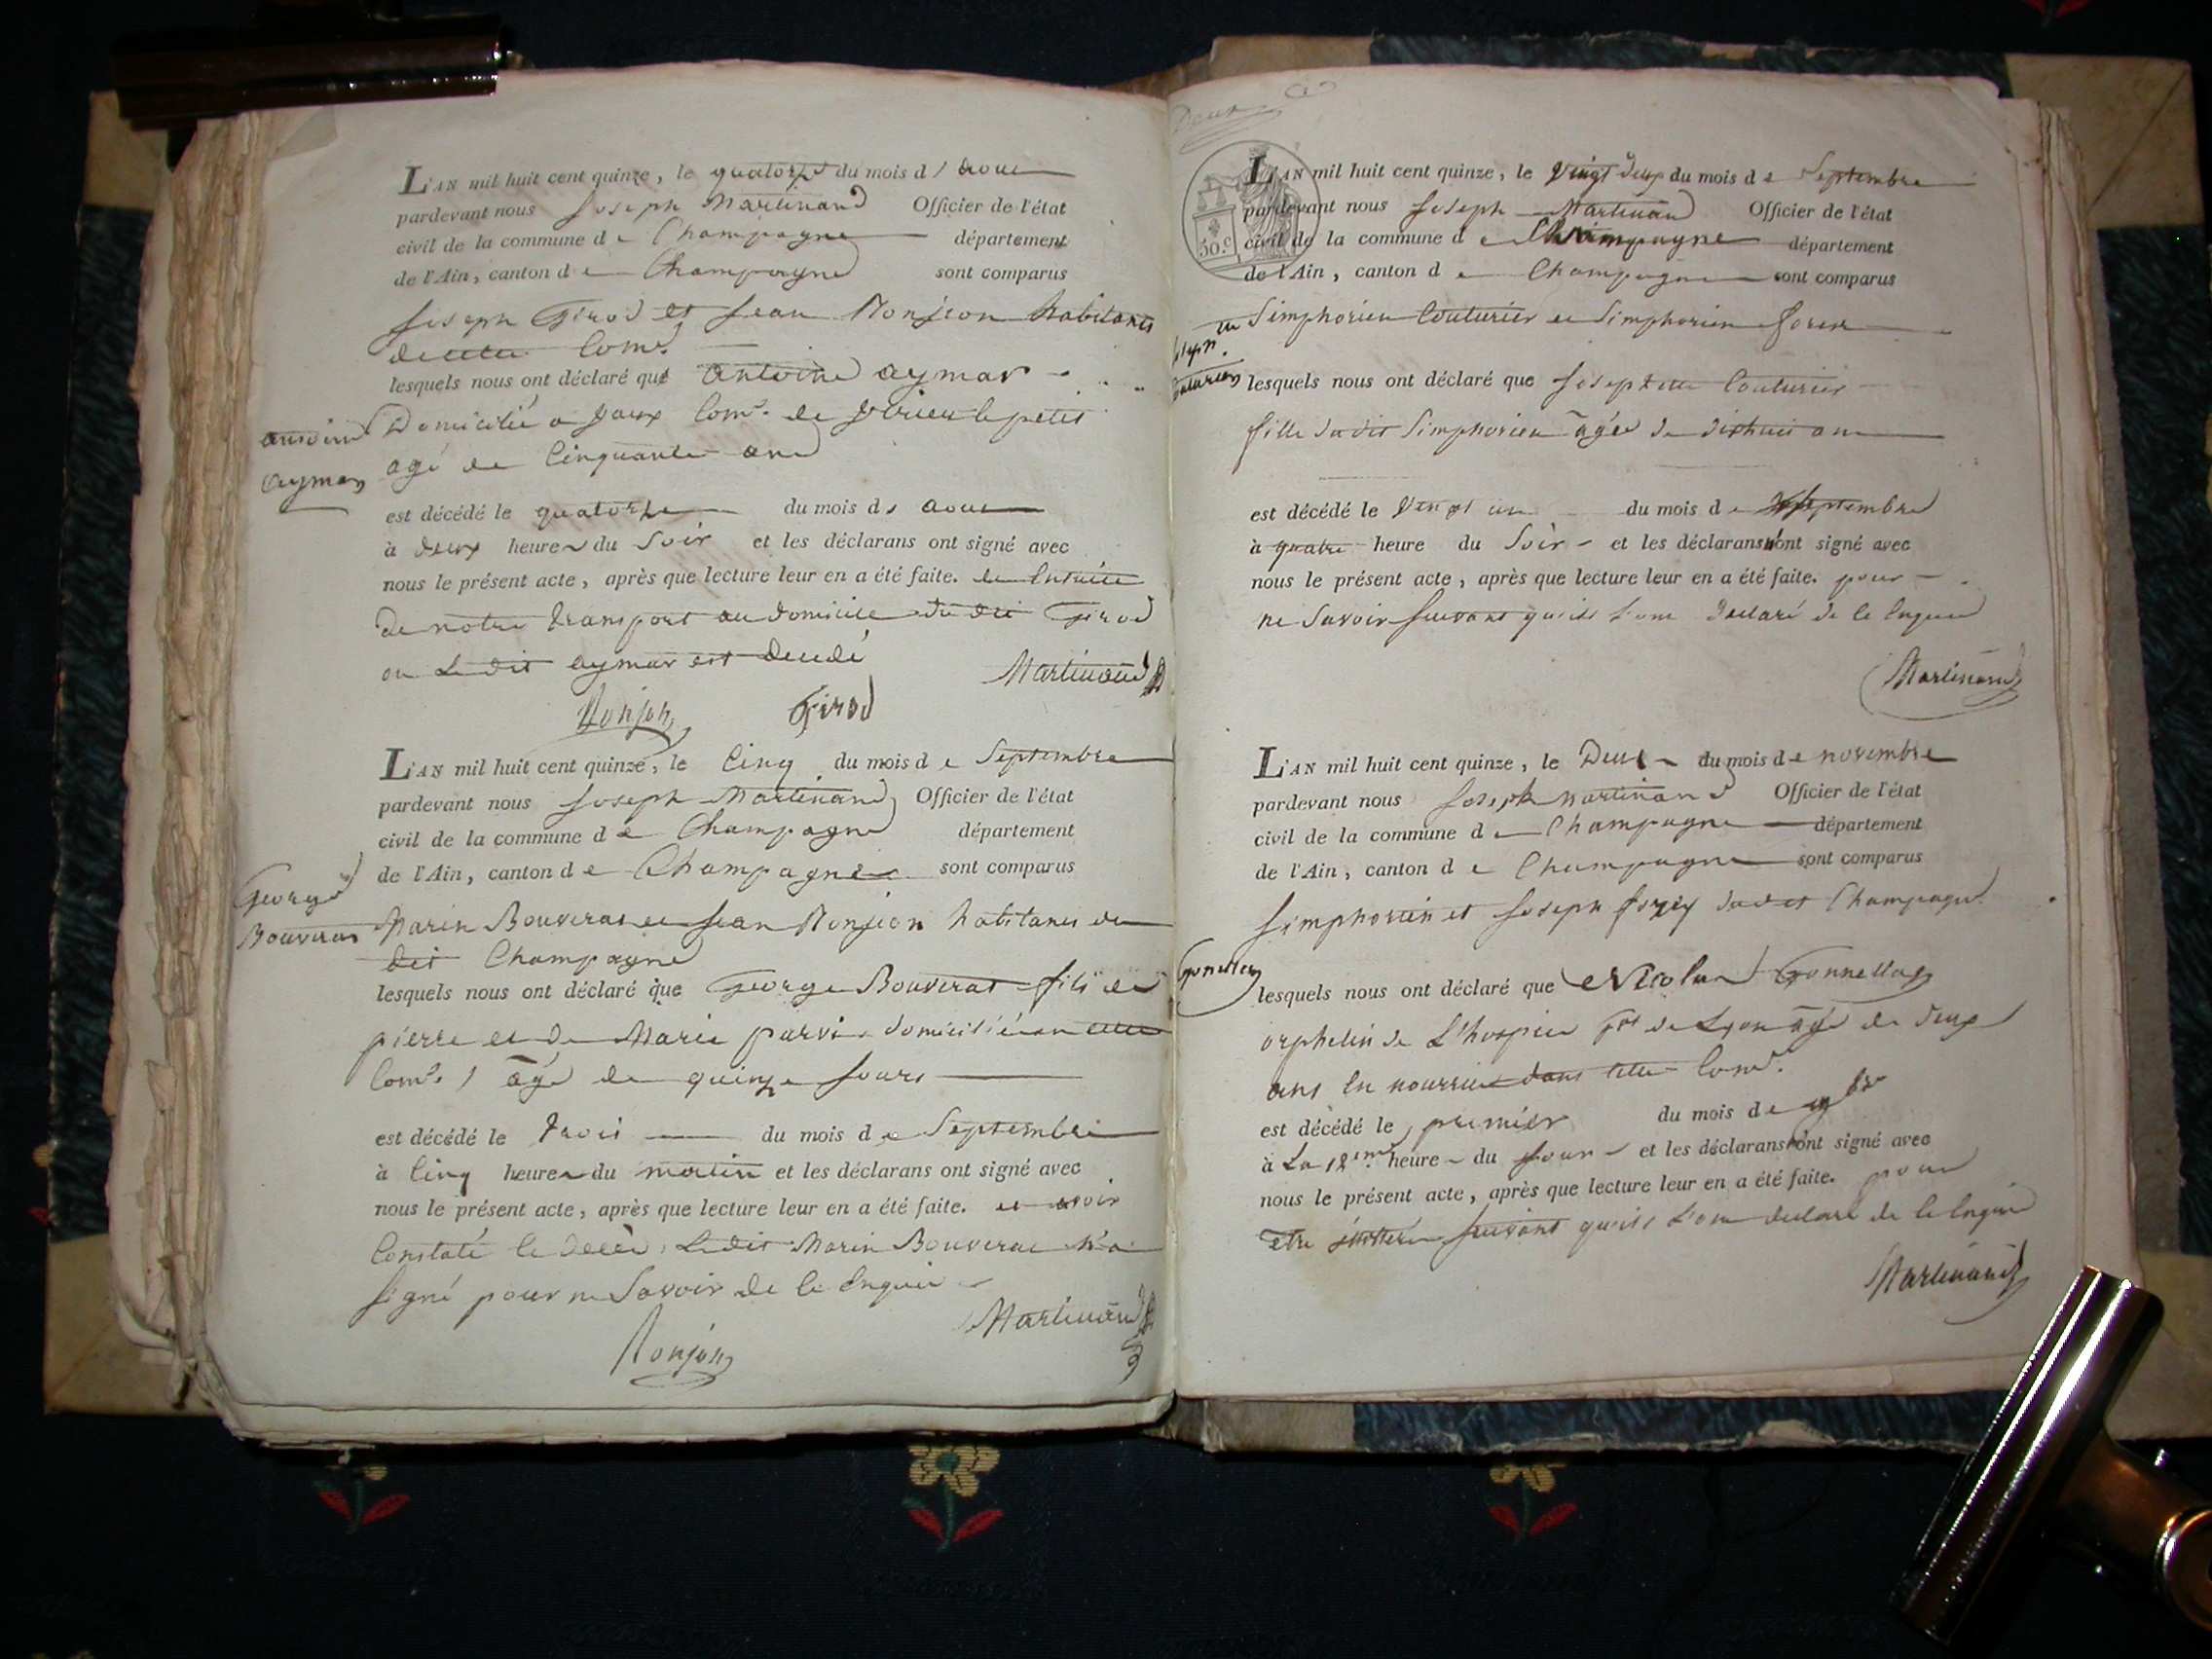 L'AN mil huit cent quinze, le quatorze du mois d'aout
pardevant nous Joseph Martinand Officier de l'état
civil de la commune de Champagne département
de l'Ain, canton de Champagne sont comparus
Joseph Girod et Jean Monjeon habitants
de cette Comᵉ.
lesquels nous ont déclaré que Antoine aymar
Domicilié a Vaux Comᵉ. de le petit
agé de Cinquante ans
antoine
aymar
est décédé le quatorze du mois d'aout
à deux heures du Soir et les déclarans ont signé avec
nous le présent acte, après que lecture leur en a été faite. de Ensuitte
De notre transport au domicile du dit Girod
ou Le dit aymar est decedé
Martinand
Monjon Girod
L'AN mil huit cent quinze, le Cinq du mois de Septembre
pardevant nous Joseph Martinand Officier de l'état
civil de la commune de Champagne département
de l'Ain, canton de Champagne sont comparus
George
Bouverat
Marin Bouverat et Jean Monjeon habitants du
dit Champagne
lesquels nous ont déclaré que George Bouverat fils de
pierre et De Marie parvi domicilié en cette
Comᵉ. agé de quinze Jours
est décédé le trois du mois de Septembre
à Cinq heures du matin et les déclarans ont signé avec
nous le présent acte, après que lecture leur en a été faite. et avoir
Constaté le Decès, Le dit Marin Bouverat n'a
signé pour ne Savoir de Ce Enquis
Martinand
Monjon
Deux
30.c
L'AN mil huit cent quinze, le Vingt deux du mois de Septembre
pardevant nous Joseph Martinand Officier de l'état
civil de la commune de Champagne département
de l'Ain, canton de Champagne sont comparus
Simphorien Couturier et Simphorien forex
lesquels nous ont déclaré que Josephtte Couturier
fille dudit Simphorien agée de dixhuit ans
est décédé le Vingt un du mois de Septembre
à quatre heure du Soir et les déclarans n'ont signé avec
nous le présent acte, après que lecture leur en a été faite. pour
ne Savoir suivant qu'ils L'ont Declaré de Ce Enquis
Martinand
L'AN mil huit cent quinze, le Deux du mois de novembre
pardevant nous Joseph Martinand Officier de l'état
civil de la commune de Champagne département
de l'Ain, canton de Champagne sont comparus
Simphorien et Joseph forex dudit Champagne
lesquels nous ont déclaré que Nicolas Gonnellas
orphelin de L'hospice de Lyon agé de deux
ans En nourrice dans cette Comᵉ.
est décédé le premier du mois de 9bre
à La 12ᵉᵐᵉ heure du Jour et les déclarans n'ont signé avec
nous le présent acte, après que lecture leur en a été faite. pour
etre illitterés suivant qu'ils L'ont declaré de Ce Enquis
Martinand